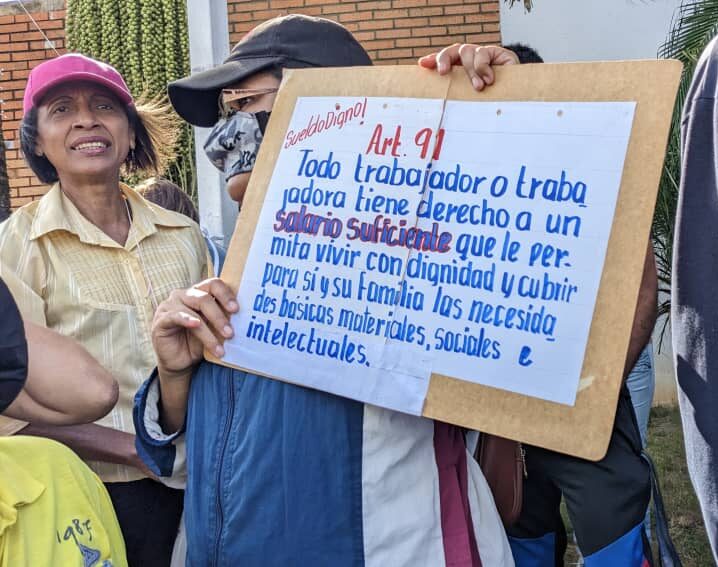 SueldoDigno!
Art. 91
Todo trabajador o traba
jadora tiene derecho a un
salario sufficiente que le per-
mita vivir con dignidad y cubrir
para sí y su familia las necesida
des básicas materiales, sociales e
intelectuales.
1987